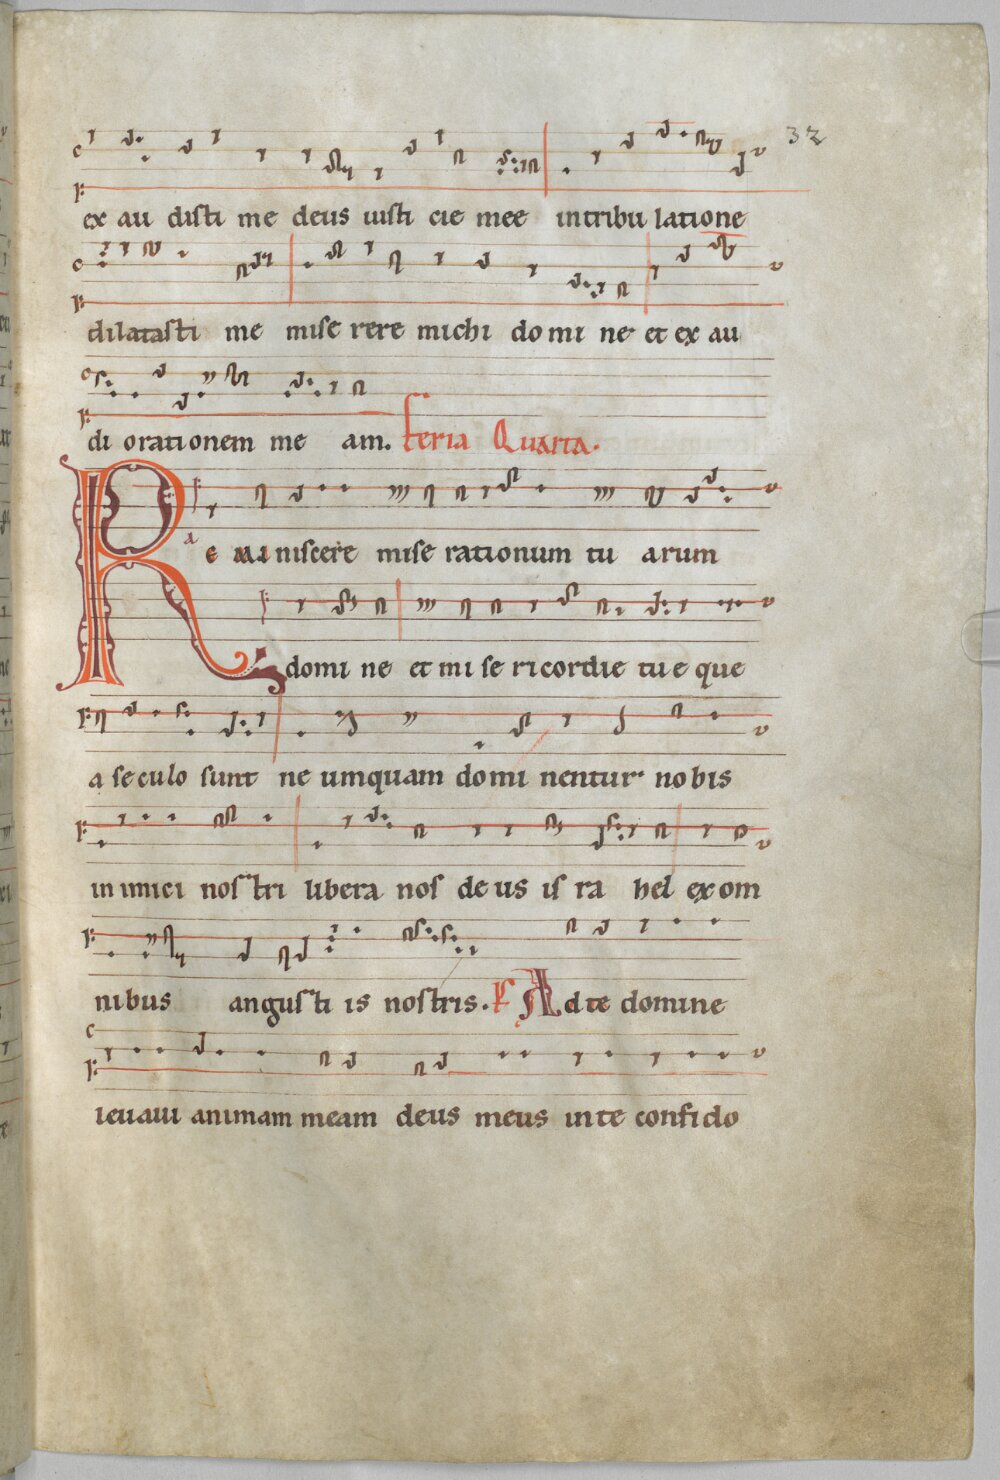 32
ex au disti me deus iusti cie mee intribu latione
dilatasti me mise rere michi do mi ne et ex au
di orationem me am. feria Quarta.
Re mi niscere mise rationum tu arum
domi ne et mi se ricordie tue que
a se culo sunt ne umquam domi nentur nobis
in imici nostri libera nos de us is ra hel ex om
nibus angusti is nostris. Ps Ad te domine
levavi animam meam deus meus in te confido